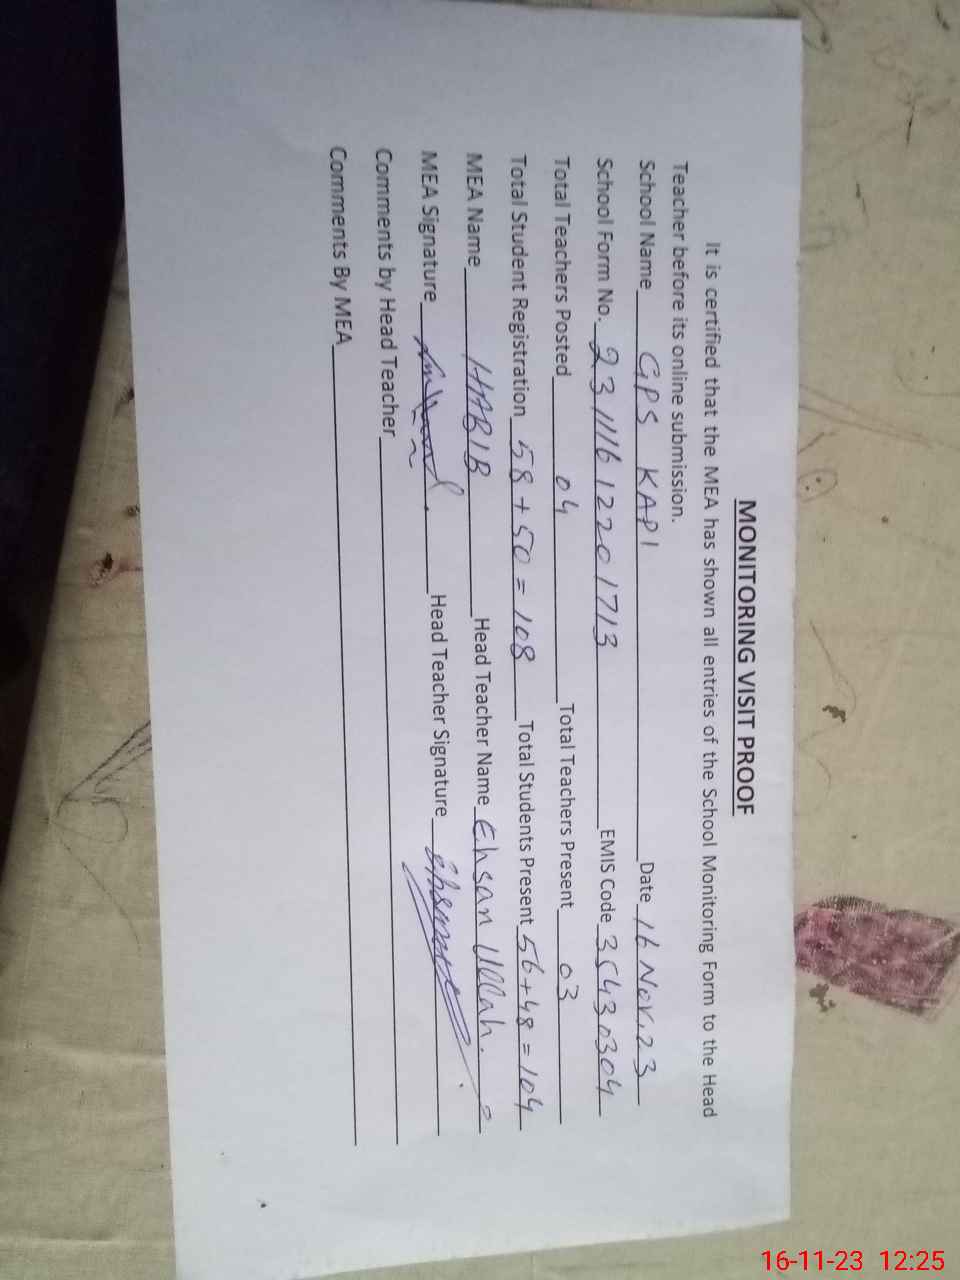 MONITORING VISIT PROOF
It is certified that the MEA has shown all entries of the School Monitoring Form to the Head
Teacher before its online submission.
School Name GPS KAPI Date 16 Nov. 23
School Form No. 231116 1220 1713 EMIS Code 35430304
Total Teachers Posted 04 Total Teachers Present 03
Total Student Registration 58 + 50 = 108 Total Students Present 56 + 48 = 104
MEA Name HABIB Head Teacher Name Ehsan Ullah.
MEA Signature Head Teacher Signature
Comments by Head Teacher
Comments By MEA
16-11-23 12:25